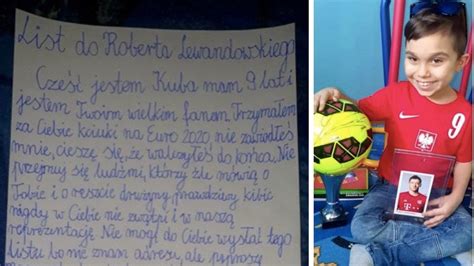 List do Roberta Lewandowskiego
Cześć jestem Kuba mam 9 lat i
jestem Twoim wielkim fanem Trzymałem
za Ciebie kciuki na Euro 2020, nie zawiodłeś
mnie, cieszę się, że walczyłeś do końca. Nie
przejmuj się ludźmi, którzy źle mówią o
Tobie i o reszcie drużyny prawdziwy kibic
nigdy w Ciebie nie zwątpi i w naszą
reprezentację. Nie mogę do Ciebie wysłać tego
listu bo nie znam adresu, ale poproszę
9